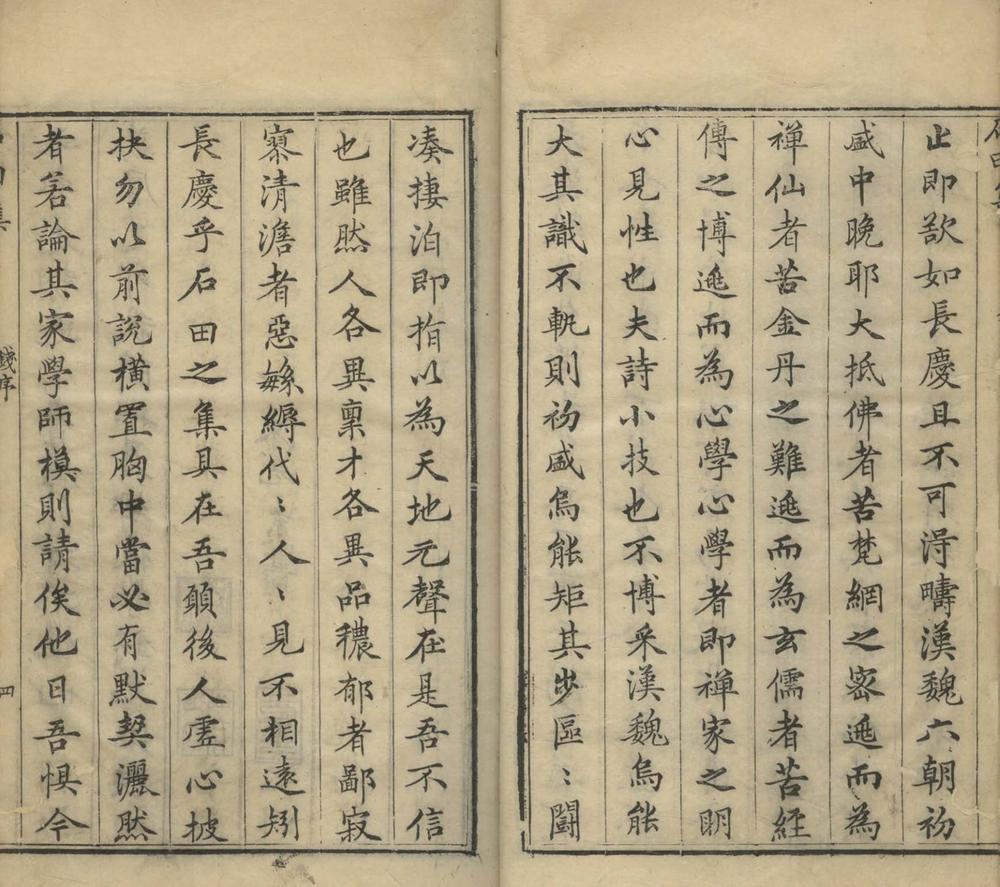 止即欲如長慶且不可淂疇漢魏六朝初
盛中晚耶大抵佛者苦梵網之密迯而為
禅仙者苦金丹之難迯而為玄儒者苦經
傳之博迯而為心學心學者即禅家之明
心見性也夫詩小技也不博采漢魏烏能
大其識不軌則初盛烏能矩其步區〻鬬
湊捿泊即指以為天地元聲在是吾不信
也雖然人各異稟才各異品穠郁者鄙寂
寥清澹者惡緐縟代〻人〻見不相遠矧
長慶乎石田之集具在吾願後人虛心披
抉勿以前說橫置胸中當必有默契灑然
者若論其家學師模則請俟他日吾惧今
錢序
四